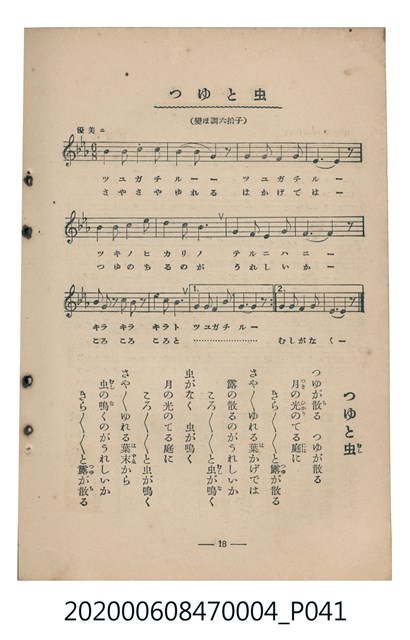 つゆと虫
(變ほ調六拍子)
優美ニ
ツユガチルーー ツユガチルー
さやさやゆれる はかげではー
ツキノヒカリノ テルニハニー
つゆのちるのが うれしいかー
1. 2.
キラキラ キラト ツユガチルー
ころころ ころと むしがなくー
つゆと虫
つゆが散る つゆが散る
月の光のてる庭に
きら〳〵〳〵と露が散る
さや〳〵ゆれる葉かげでは
露の散るのがうれしいか
ころ〳〵〳〵と虫が鳴く
虫がなく 虫が鳴く
月の光のてる庭に
ころ〳〵〳〵と虫が鳴く
さや〳〵ゆれる葉末から
虫の鳴くのがうれしいか
きら〳〵〳〵と露が散る
— 18 —
202000608470004_P041